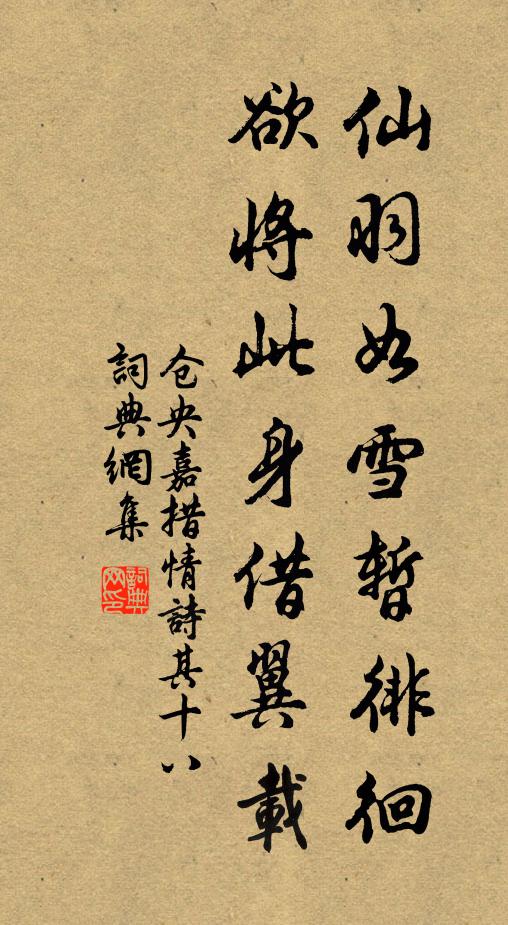 仙羽如雪暫徘徊
欲將此身借翼載
仓央嘉措情詩其十八
詞典網集
詞典网印